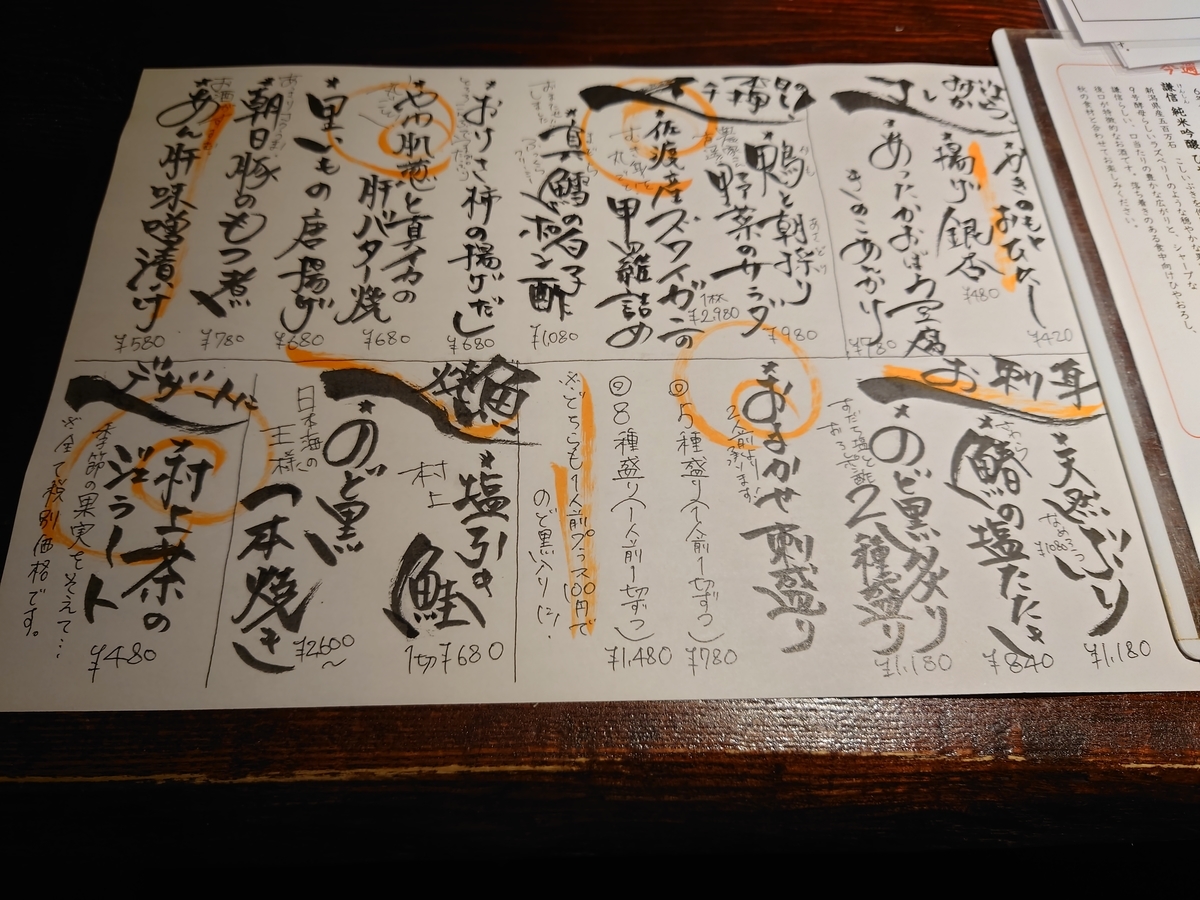 かきのもと おひたし
¥420
揚げ銀杏
¥480
あったかおぼろ豆腐
きのこあんかけ
¥780
鴨と朝採り
野菜のサラダ
¥980
佐渡産ズワイガニの
甲羅詰め
1杯
¥2980
真鱈の白子
ポン酢
¥1,080
おけさ柿の揚げだし
¥680
やわ肌葱と真イカの
肝バター焼
¥680
里いもの唐揚げ
¥680
朝日豚のもつ煮
¥780
あん肝味噌漬け
¥580
お刺身
天然ぶり
¥1,180
鰆の塩たたき
¥840
のど黒炙り
2種盛り
¥1,180
おまかせ刺盛り
2人前より承ります
◎5種盛り(1人前1切ずつ)
¥780
◎8種盛り(1人前1切ずつ)
¥1,480
※どちらも1人前プラス100円で
のど黒入りに!
焼魚
塩引き
村上
鮭
1切¥680
のど黒
日本海の
王様
一本焼き
¥2600~
村上茶の
ジェラート
季節の果実をそえて…
¥480
※全て税別価格です。
謙信 純米吟醸
新潟県産五百万石